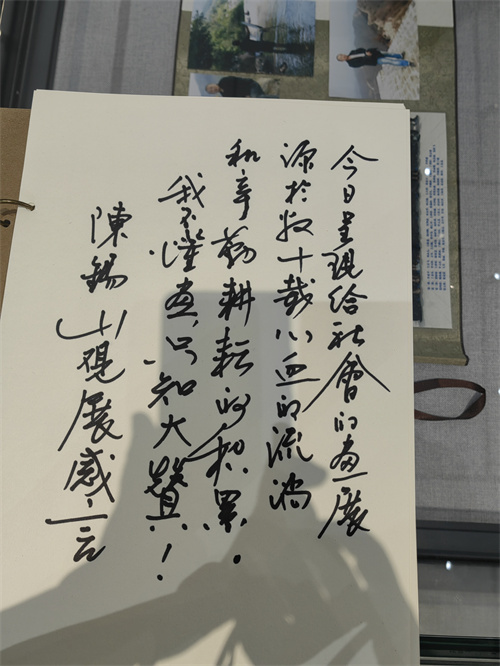 今日呈現给社會的畫展
源於数十载心血的流淌
和辛勤耕耘的积累.
我不懂畫，只知大贊！
陳錫山觀展感言